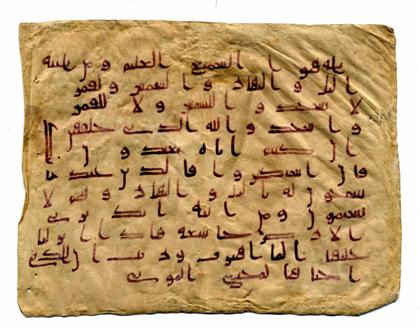 هو السميع العليم ومن ايته
اليل والنهار والشمس والقمر
لا تسجدوا للشمس ولا للقمر
واسجدوا لله الذي خلقهن
ان كنتم اياه تعبدون
فان استكبروا فالذين عند
يسبحون له باليل والنهار وهم لا
يسمون ومن ايته انك ترى
الارض خشعة فاذا انزلنا
عليها الما اهتزت وربت ان الذي
احياها لمحي الموتى